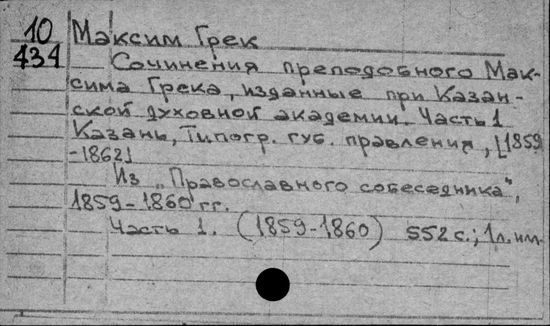 10
434
Максим Грек
Сочинения преподобного Мак-
сима Грека, изданные при Казан-
ской духовной академии. Часть 1
Казань, Типогр. губ. правления, [1859
-1862]
Из „Православного собеседника",
1859-1860 гг.
Часть 1. (1859-1860) 552 с.; 1 л. ил.